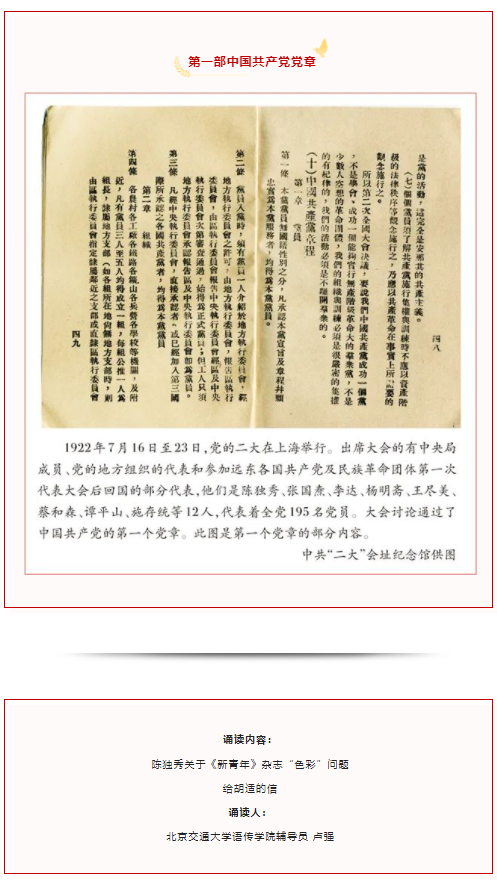 第一部中国共产党党章
是黨的活動，這完全是安那其的共產主義。
(七)個個黨員須了解共產黨施行集權與訓練時不應以資產階
級的法律秩序等觀念施行之，乃應以共產革命在事實上所需要的
觀念施行之。
所以第二次全國大會決議，要說我們中國共產黨成功一個黨
，不是學會，成功一個能夠實行無產階級革命大的羣衆黨，不是
少數人空想的革命團體，我們的組織與訓練必須是很嚴密的集權
的有紀律的，我們的活動必須是不離開羣衆的。
(十)中國共產黨章程
第一章 黨員
第一條 本黨黨員無國籍性別之分，凡承認本黨宣言及章程并願
忠實爲本黨服務者，均得爲本黨黨員。
四八
第二條 黨員入黨時，須有黨員一人介紹於地方執行委員會，經
地方執行委員會之許可，由地方執行委員會，報告區執行
委員會，由區執行委員會報告中央執行委員會經區及中央
執行委員會次第審查通過，始得爲正式黨員；但工人只須
地方執行委員會承認報告區及中央執行委員會卽爲黨員。
第三條 凡經中央執行委員會，直接承認者、或已經加入第三國
際所承認之各國共產黨者，均得爲本黨黨員
第二章 組織
第四條 各農村各工廠各鐵路各鑛山各兵營各學校等機關，及附
近，凡有黨員三人至五人均得成立一組，每組公推一人爲
組長，隸屬地方支部（如各組所在地尚無地方支部時，則
由區執行委員會指定隸屬鄰近之支部或直隸區執行委員會
四九
1922年7月16日至23日，党的二大在上海举行。出席大会的有中央局
成员、党的地方组织的代表和参加远东各国共产党及民族革命团体第一次
代表大会后回国的部分代表，他们是陈独秀、张国焘、李达、杨明斋、王尽美、
蔡和森、谭平山、施存统等12人，代表着全党195名党员。大会讨论通过了
中国共产党的第一个党章。此图是第一个党章的部分内容。
中共“二大”会址纪念馆供图
诵读内容：
陈独秀关于《新青年》杂志“色彩”问题
给胡适的信
诵读人：
北京交通大学语传学院辅导员 卢强